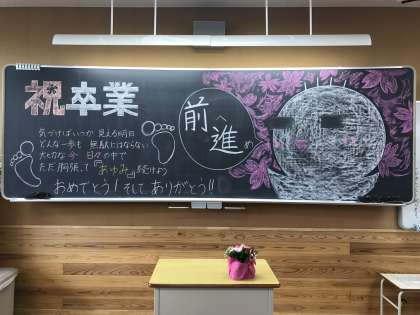 祝卒業
気づけばいつか 見える明日
どんな一歩も 無駄にはならない
大切な 今 日々の中で
ただ 胸張って「あゆみ」続けよう
おめでとう！そして ありがとう!!
前へ
進め